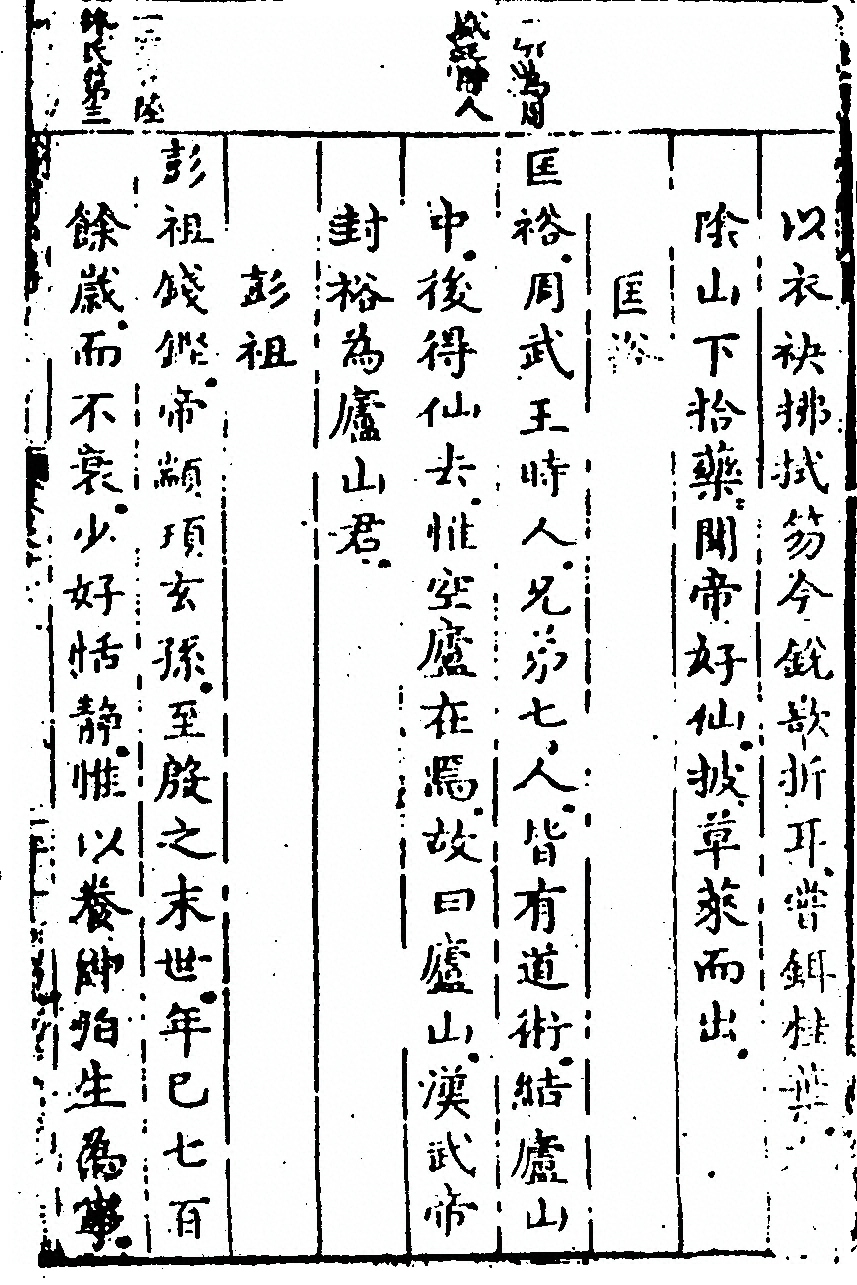 以衣袂拂拭笏今銳欲折耳嘗餌桂葉
陰山下拾藥聞帝好仙披草萊而出
匡裕
匡裕周武王時人兄弟七人皆有道術結廬山
中後得仙去惟空廬在焉故曰廬山漢武帝
封裕為廬山君
彭祖
彭祖錢鏗帝顓頊玄孫至殷之末世年已七百
餘歲而不衰少好恬靜惟以養神治生為事